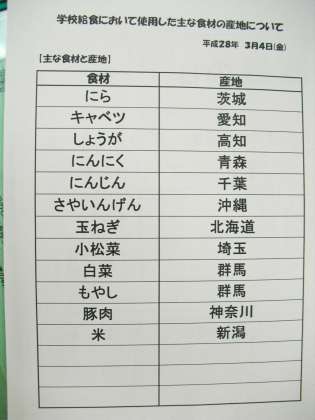 学校給食において使用した主な食材の産地について
平成28年 3月4日(金)
【主な食材と産地】
食材 産地
にら 茨城
キャベツ 愛知
しょうが 高知
にんにく 青森
にんじん 千葉
さやいんげん 沖縄
玉ねぎ 北海道
小松菜 埼玉
白菜 群馬
もやし 群馬
豚肉 神奈川
米 新潟